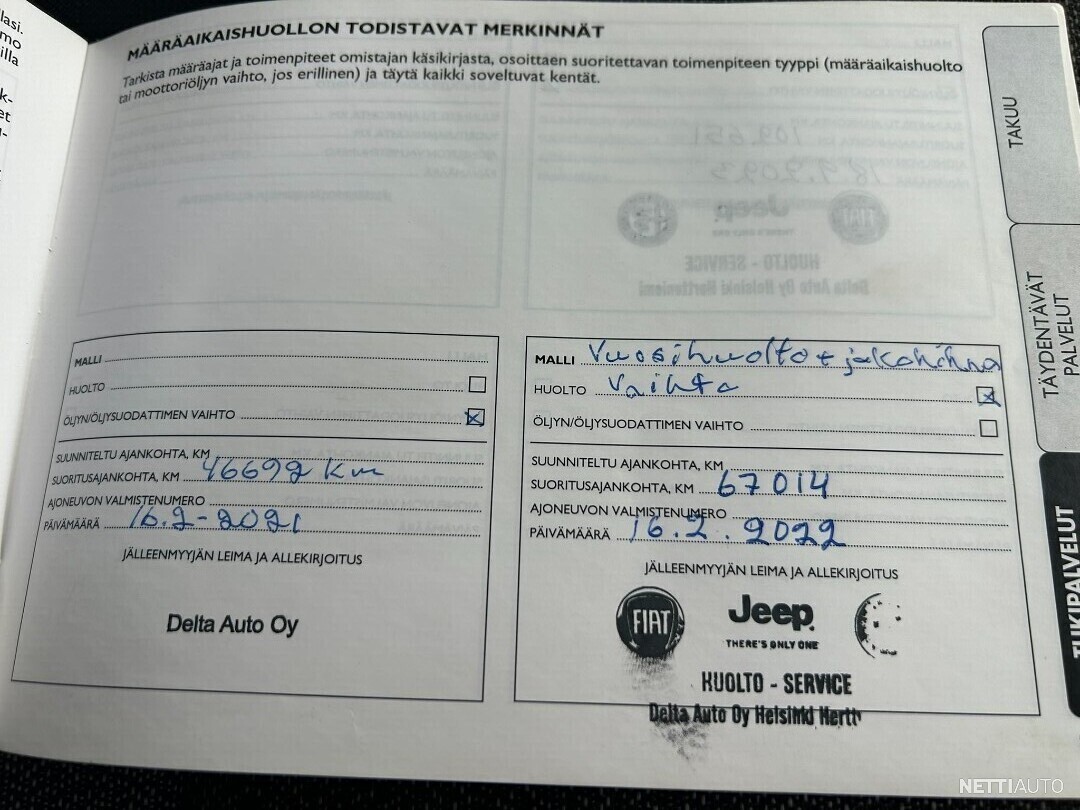 lasi.
mo
illa
k-
et
u-
MÄÄRÄAIKAISHUOLLON TODISTAVAT MERKINNÄT
Tarkista määräajat ja toimenpiteet omistajan käsikirjasta, osoittaen suoritettavan toimenpiteen tyyppi (määräaikaishuolto
tai moottoriöljyn vaihto, jos erillinen) ja täytä kaikki soveltuvat kentät.
MALLI
HUOLTO
ÖLJYN/ÖLJYSUODATTIMEN VAIHTO
SUUNNITELTU AJANKOHTA, KM
SUORITUSAJANKOHTA, KM 46692 km
AJONEUVON VALMISTENUMERO
PÄIVÄMÄÄRÄ 16.2-2021
JÄLLEENMYYJÄN LEIMA JA ALLEKIRJOITUS
Delta Auto Oy
MALLI Vuosihuolto + jakohihna
HUOLTO Vaihto
ÖLJYN/ÖLJYSUODATTIMEN VAIHTO
SUUNNITELTU AJANKOHTA, KM
SUORITUSAJANKOHTA, KM 67014
AJONEUVON VALMISTENUMERO
PÄIVÄMÄÄRÄ 16.2.2022
JÄLLEENMYYJÄN LEIMA JA ALLEKIRJOITUS
FIAT Jeep
THERE'S ONLY ONE
HUOLTO - SERVICE
Delta Auto Oy Helsinki Hertt
TAKUU
TÄYDENTÄVÄT
PALVELUT
TUKIPALVELUT
NETTIAUTO